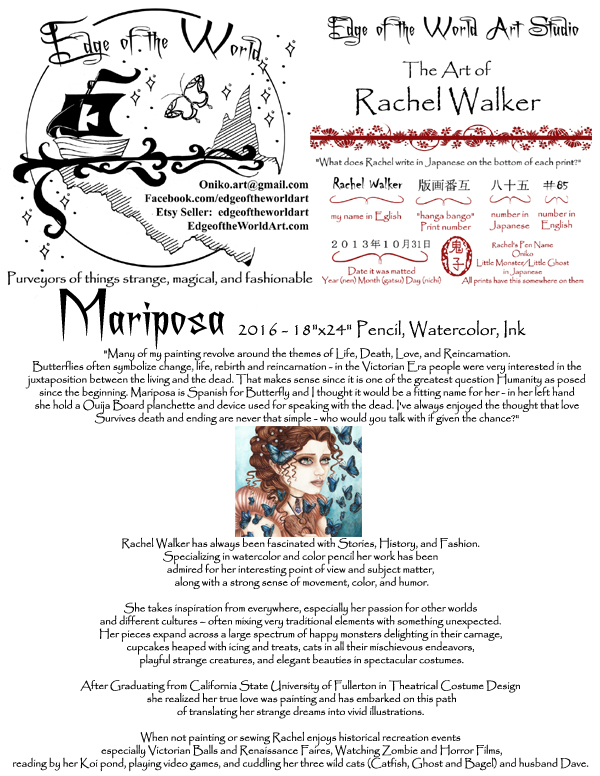 Edge of the World
Oniko.art@gmail.com
Facebook.com/edgeoftheworldart
Etsy Seller: edgeoftheworldart
EdgeoftheWorldArt.com
Purveyors of things strange, magical, and fashionable
Edge of the World Art Studio
The Art of
Rachel Walker
"What does Rachel write in Japanese on the bottom of each print?"
Rachel Walker 版画番互 八十五 #85
my name in Eglish "hanga bango" Print number number in Japanese number in English
2013年10月31日
Date it was matted
Year (nen) Month (gatsu) Day (nichi)
鬼子
Rachel's Pen Name
Oniko
Little Monster/Little Ghost
in Japanese
All prints have this somewhere on them
Mariposa 2016 - 18"x24" Pencil, Watercolor, Ink
"Many of my painting revolve around the themes of Life, Death, Love, and Reincarnation.
Butterflies often symbolize change, life, rebirth and reincarnation - in the Victorian Era people were very interested in the
juxtaposition between the living and the dead. That makes sense since it is one of the greatest question Humanity as posed
since the beginning. Mariposa is Spanish for Butterfly and I thought it would be a fitting name for her - in her left hand
she hold a Ouija Board planchette and device used for speaking with the dead. I've always enjoyed the thought that love
Survives death and ending are never that simple - who would you talk with if given the chance?"
Rachel Walker has always been fascinated with Stories, History, and Fashion.
Specializing in watercolor and color pencil her work has been
admired for her interesting point of view and subject matter,
along with a strong sense of movement, color, and humor.
She takes inspiration from everywhere, especially her passion for other worlds
and different cultures – often mixing very traditional elements with something unexpected.
Her pieces expand across a large spectrum of happy monsters delighting in their carnage,
cupcakes heaped with icing and treats, cats in all their mischievous endeavors,
playful strange creatures, and elegant beauties in spectacular costumes.
After Graduating from California State University of Fullerton in Theatrical Costume Design
she realized her true love was painting and has embarked on this path
of translating her strange dreams into vivid illustrations.
When not painting or sewing Rachel enjoys historical recreation events
especially Victorian Balls and Renaissance Faires, Watching Zombie and Horror Films,
reading by her Koi pond, playing video games, and cuddling her three wild cats (Catfish, Ghost and Bagel) and husband Dave.